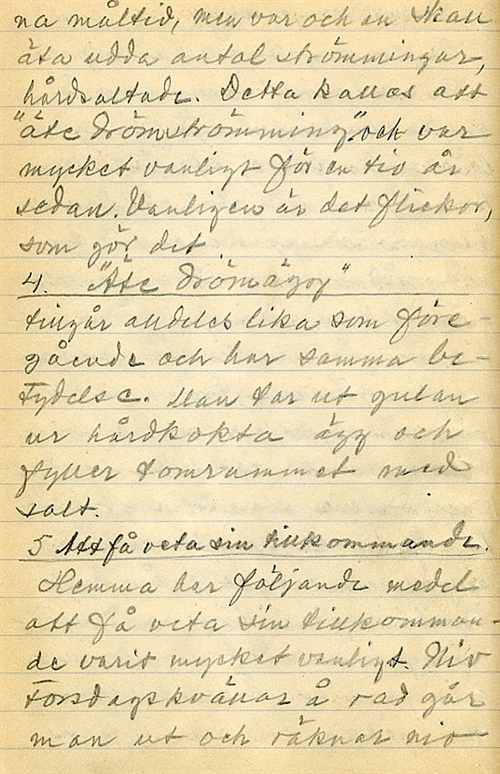 na måltid, men var och en skall
äta udda antal strömmingar,
hårdsaltade. Detta kallas att
"äte drömströmming" och var
mycket vanligt för en tio år
sedan. Vanligen är det flickor,
som gör det.
4. "Äte drömägg"
tillgår alldeles lika som före-
gående och har samma be-
tydelse. Man tar ut gulan
ur hårdkokta ägg och
fyller tomrummet med
salt.
5 Att få veta sin tillkommande.
Hemma har följande medel
att få veta sin tillkomman-
de varit mycket vanligt. Nio
torsdagskvällar å rad går
man ut och räknar nio